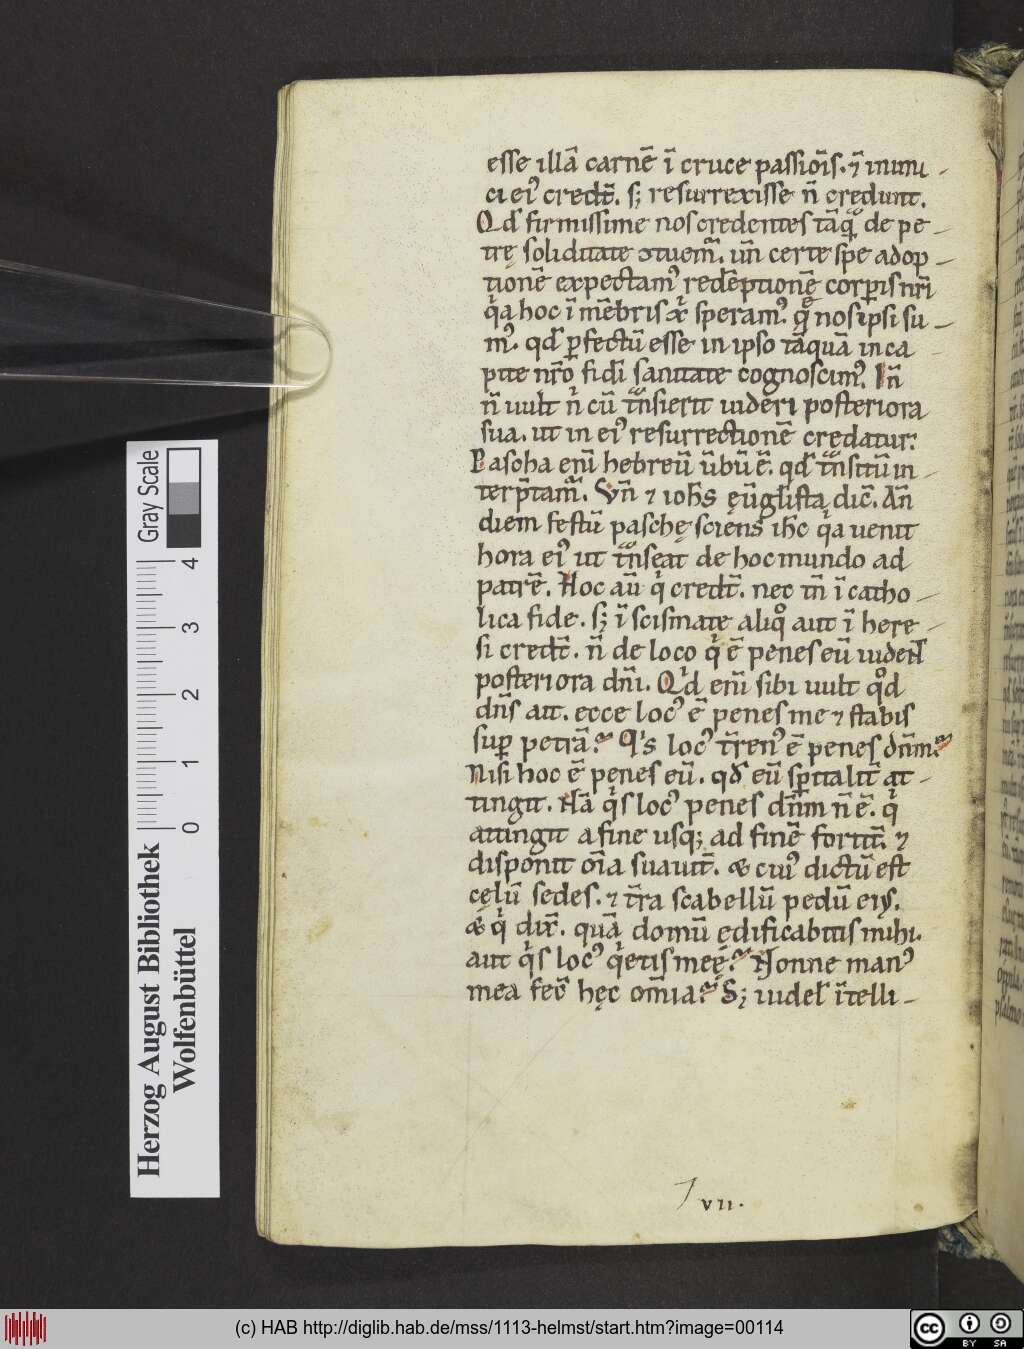 esse illā carnē ī cruce passiōīs. ⁊ inimi-
ci eiꝰ credt̄. s; resurrexisse n̄ credunt.
Qd̄ firmissime nos credentes tāq̄ de pe-
trę soliditate ↄtuem̄. un̄ certe spe adop-
tionē expectamꝰ redēptionē corꝑis nr̄i
qͥa hoc ī mēbris & speramꝰ. nos ipsi su-
mꝰ. qd̄ ꝑfectū esse in ipso tāquā in ca
pite nr̄o fidī sanitate cognoscimꝰ. In̄
n̄ uult cū tn̄sierit uideri posteriora
sua. ut in eiꝰ resurrectionē credatur.
Pascha enī hebreū ūbū ē. qd̄ tn̄sitū in-
terp̄tam̄. Vn̄ ⁊ ioh̄s eūglista dic̄. An̄
diem festū paschę sciens ih̄c qͥa uenit
hora eiꝰ ut tn̄seat de hoc mundo ad
patrē. Hoc aū qͥ credt̄. nec tn̄ ī catho-
lica fide. s; ī scismate aliqͦ aut ī here-
si credt̄. n̄ de loco qͥ ē penes eū uidet̄
posteriora dn̄i. Qͥd enī sibi uult qͦd
dn̄s ait. ecce locꝰ ē penes me ⁊ stabis
suꝑ petrā. Qͥs locꝰ t̄renꝰ ē penes dn̄m.
Nisi hoc ē penes eū. qd̄ eū sp̄italit̄ at-
tingit. Nā qͥs locꝰ penes dn̄m n̄ ē. qͥ
attingit a fine usq; ad finē fortit̄. ⁊
disponit oīa suauit̄. & cuiꝰ dictū est
cęlū sedes. ⁊ t̄ra scabellū pedū eiꝰ.
& qͥ dix̄. quā domū ędificabitis mihi.
aut qͥs locꝰ qͥetis meę. Nonne manꝰ
mea fec̄ hęc om̄ia. S; uidel̄ ītelli-
vii.
Herzog August Bibliothek
Wolfenbüttel
Gray Scale
0 1 2 3 4
(c) HAB http://diglib.hab.de/mss/1113-helmst/start.htm?image=00114
cc BY SA